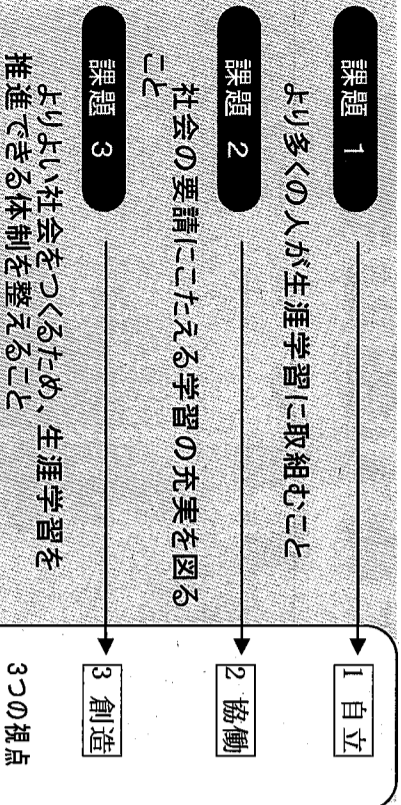 課題 1
より多くの人が生涯学習に取組むこと
1 自立
課題 2
社会の要請にこたえる学習の充実を図る
こと
2 協働
課題 3
よりよい社会をつくるため、生涯学習を
推進できる体制を整えること
3 創造
3つの視点